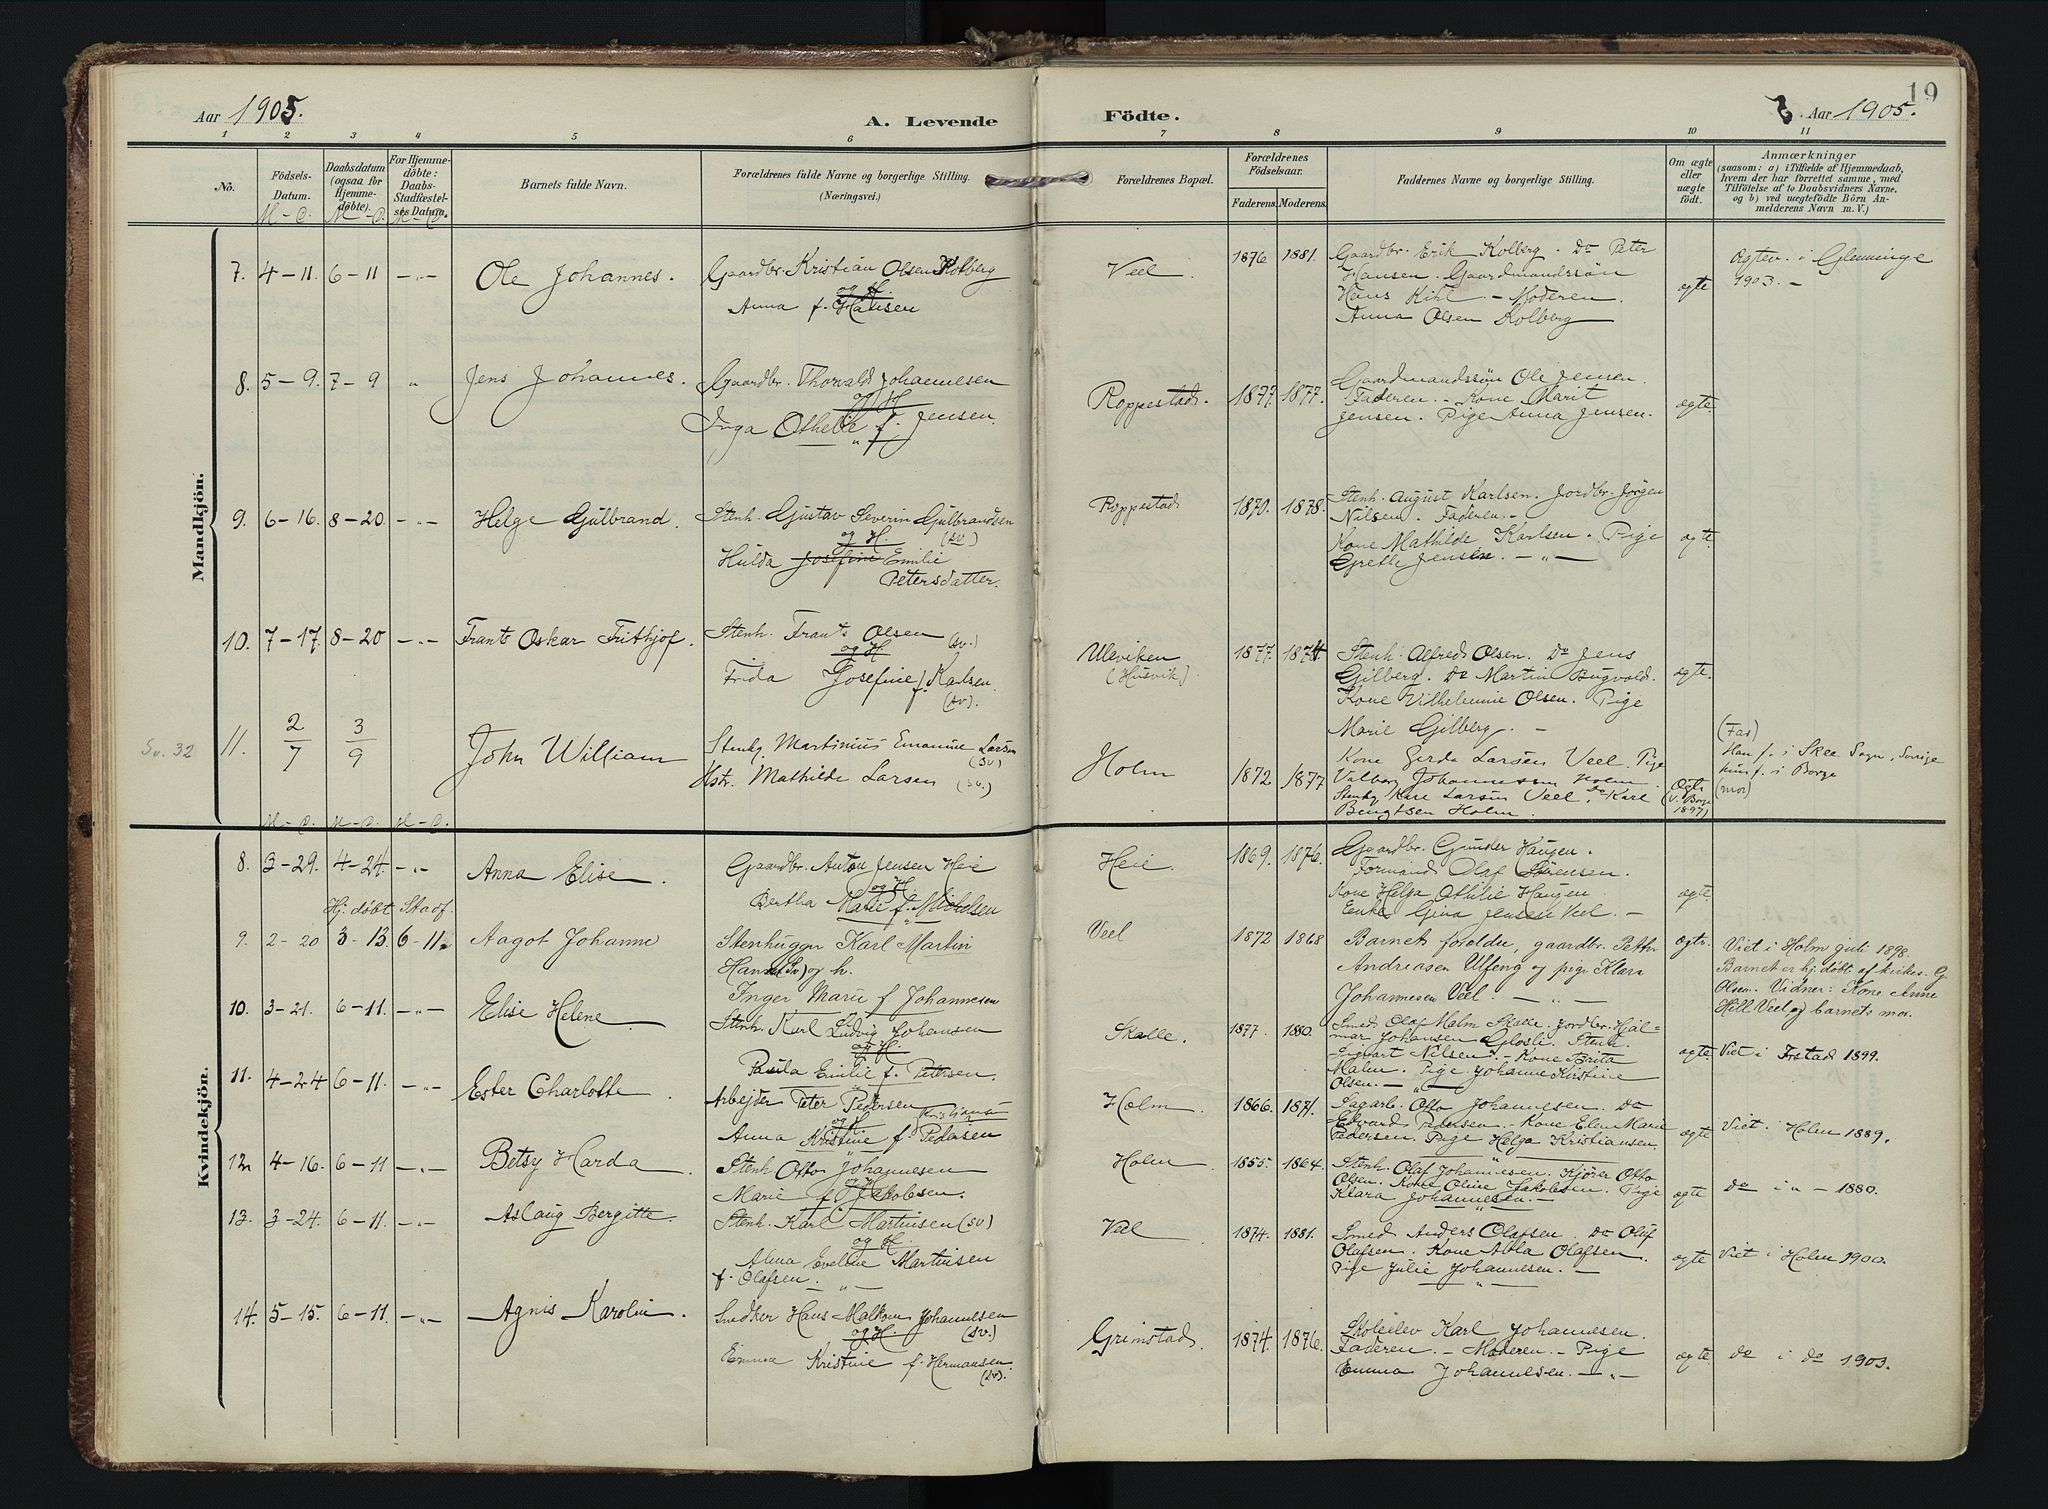 Aar 1905.
A. Levende
Födte.
Aar 1905.
19
1 2 3 4 5 6 7 8 9 10 11
No.
Födsels-Datum.
M – D.
Daabsdatum (ogsaa for Hjemme-döbte).
M – D.
For Hjemme-döbte: Daabs-Stadfæstel-ses Datum.
M – D.
Barnets fulde Navn.
Forældrenes fulde Navne og borgerlige Stilling.
(Næringsvei.)
Forældrenes Bopæl.
Forældrenes Födselsaar.
Faderens.
Moderens.
Faddernes Navne og borgerlige Stilling.
Om ægte eller uægte födt.
Anmærkninger
(saasom: a) i Tilfælde af Hjemmedaab,
hvem der har forrettet samme, med
Tilföielse af to Daabsvidners Navne,
og b) ved uægtefödte Börn An-
melderens Navn m. V.)
Mandkjön.
7. 4–11. 6–11 –"– Ole Johannes.
Gaardbr. Kristian Olsen Kolberg
og H.
Anna f. Hansen
Veel. 1876 1881.
Gaardbr. Erik Kolberg. Do Peter
Hansen. Gaardmandssön
Hans Kihl. – Moderen.
Anna Olsen Kolberg
ægte
Ægtev. i Glemminge
1903. –
8. 5–9. 7–9 " Jens Johannes.
Gaardbr. Thorvald Johannesen
og H
Inga Othelie f. Jensen.
Roppestad. 1877. 1877.
Gaardmandssön Ole Jensen.
Faderen. – Kone Marit
Jensen. Pige Anna Jensen.
ægte
9. 6–16. 8–20. –"– Helge Gulbrand.
Stenh. Gustav Severin Gulbrandsen
og H. (sv)
Hulda Josefine Emilie
Petersdatter.
Roppestad 1870. 1878.
Stenh. August Karlsen. Jordbr. Jørgen
Nilsen. Faderen. –
Kone Mathilde Karlsen. Pige
Grethe Jensen. – " –
ægt.
10. 7–17. 8–20 –"– Frants Oskar Frithjof.
Stenh. Frants Olsen (sv.)
og H
Frida Josefine f. Karlsen.
(sv).
Uleviken
(Husvik). 1877. 1874
Stenh. Alfred Olsen. Do Jens
Gilberg. Do Martin
Kone Vilhelmine Olsen. Pige
Marie Gilberg. –
ægte.
Sv. 32
11. 2/7 3/9 John William
Stenhg Martinius Emanuel Larsen
(sv)
Hstr. Mathilde Larsen (sv.)
Holm 1872 1877
Kone Gerda Larsen Veel. Pige
Valborg Johannessen Holm.
Stenhg Karl Larsen Veel. Do Karl
Bengtsen Holm.
Ægte
(V. Borge
1897)
(Far)
Han f. i Skee Sogn, Sverige
hun f. i Borge
(mor)
M – D. M – D. M – D.
Kvindekjön.
8. 3–29. 4–24. –"– Anna Elise.
Gaardbr. Anton Jensen Heie
og H.
Bertha Marie f. Mikkelsen
Heie 1869. 1876.
Gaardbr. Gunder Haugen.
Formand Olaf Sørensen.
Kone Helga Othilie Haugen
Enke Gina Jensen Veel. –
ægte
Hj. døbt Stadf.
9. 2–20 3–13. 6–11. Aagot Johanne
Stenhugger Karl Martin
Hansen (Sv) og h.
Inger Marie f Johannesen
Veel 1872 1868
Barnets foreldre, gaardbr. Petter
Andreasen Ulfeng og pige Klara
Johannesen Veel. – " –
ægte.
Viet i Holm juli 1898.
Barnet er hj. døbt af kirkes. G.
Olsen. Vidner: Kone Anne
Hill Veel og barnets mor.
10. 3–21. 6–11. –"– Elise Helene
Stenh. Karl Ludvig Johansen
og H.
Paula Emilie f. Petersen.
Skalle. 1877. 1880.
Smed Olaf Malm Skalle. Jordbr. Hjal-
mar Johansen Glosli. Stenh.
Sigvart Nilsen. – Kone Brita
Malm. Pige Johanne Kristine
Olsen. – " –
ægte
Viet i 1899.
11. 4–24 6–11. –"– Ester Charlotte
Arbejder Peter Pedersen
og H Kristianse
Anna Kristine f. Pedersen
Holm 1866. 1871.
Sagarb. Otto Johannesen. Do
Edvard Pedersen. Kone Elen Marie
Pedersen. Pige Helga Kristiansen.
ægte
Viet i Holm 1889.
12. 4–16. 6–11 –"– Betsy Harda
Stenh. Otto Johannesen
og H
Marie f. Jakobsen.
Holm 1855. 1864.
Stenh. Olaf Johannesen. Kjører Otto
Olsen. Kone Oline Jakobsen. Pige
Klara Johannesen. –
ægte
do i " – 1880.
13. 3–24. 6–11. –"– Aslaug Bergitte.
Stenh. Karl Martinsen (sv)
og H.
Alma Eveline Martinsen
f. Olafsen. "
Veel 1874. 1881.
Smed Anders Olafsen. Do Oluf
Olafsen. Kone Abla Olafsen.
Pige Julie Johannesen. –
ægte
Viet i Holm 1900.
14. 5–15. 6–11. –"– Agnis Karolin.
Snedker Hans Malkom Johannesen
og H. (sv.)
Emma Kristine f. Hermansen.
(sv).
Grimstad 1874. 1876.
Skoleelev Karl Johannesen.
Faderen. – Moderen. – Pige
Emma Johannesen. – " –
ægte.
do i do 1903.